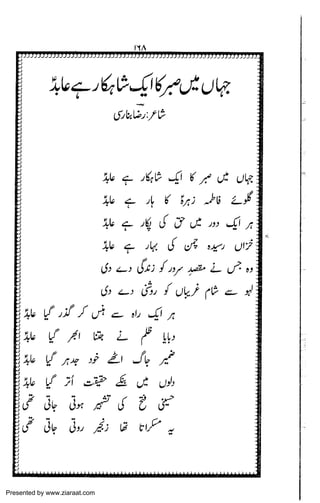 ۱۶۸
جہاں میں صبر کا ایک شاہکار ہے عابدؑ
شاعر: رضاؔ بنارسی
جہاں میں صبر کا ایک شاہکار ہے عابدؑ
گلوئے فاطمہ زہرہؑ کا ہار ہے عابدؑ
ہر ایک دور میں حق کی پکار ہے عابدؑ
خزاں رسیدہ چمن کی بہار ہے عابدؑ
وہ جس نے مقصدِ سرور کو زندگی دے دی
لہو سے شامِ غریباں کو روشنی دے دی
ہر ایک راہ سے ہنس کر گذر گیا عابدؑ
دبایا ظلم نے جتنا ابھر گیا عابدؑ
ضمیر جاگ اٹھے خود جدہر گیا عابدؑ
دلوں میں بنکے حقیقت اُتر گیا عابدؑ
حسینی فتح کی تشہیر ہوتی جاتی تھی
یہ مسکراتا تھا زنجیر روتی جاتی تھی
Presented by www.ziaraat.com